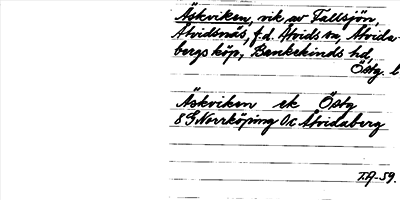 Åskviken, vik av Fallsjön,
Åtvidsnäs, f.d. Åtvids sn, Åtvida-
bergs köp, Bankekinds hd,
Östg. l
Åskviken ek Östg
8 G Norrköping 0c Åtvidaberg
T.A-59.